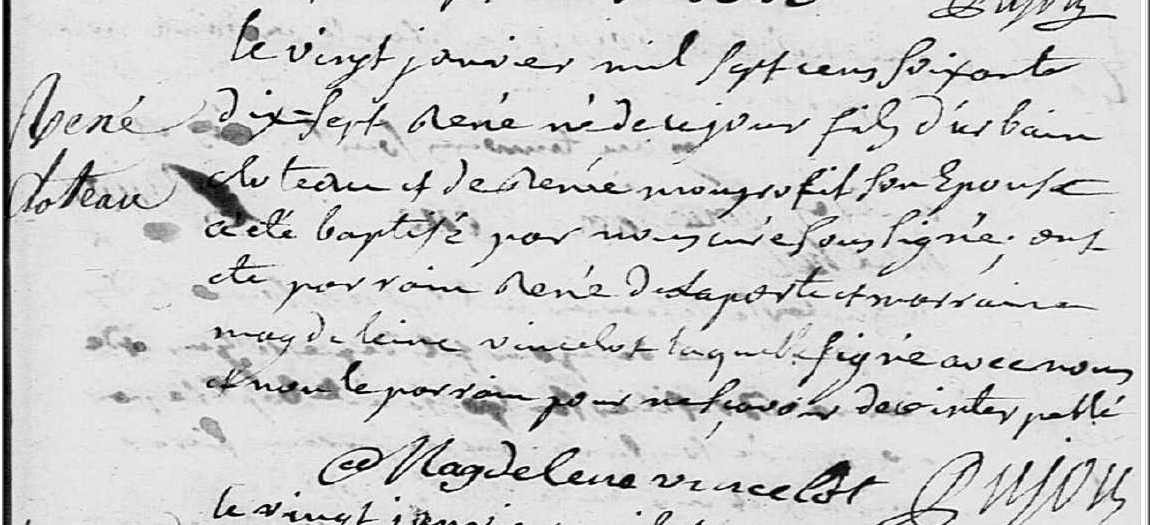 Dujon
le vingt janvier mil sept cens soixante
René
dix-sept René né de ce jour fils d'urbain
cloteau
cloteau et de Renée mongrofit son Epouse
a été baptisé par nous curé soussigné, ont
été parrain René Delaporte et marraine
magdeleine vincelot laquelle signé avec nous
et non le parrain pour ne sçavoir de ce interpellé
Magdelene vincelot Dujon
le vingt